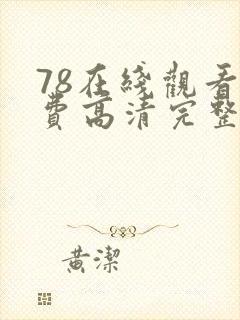 78在綫觀看
費高清完整
黄潔